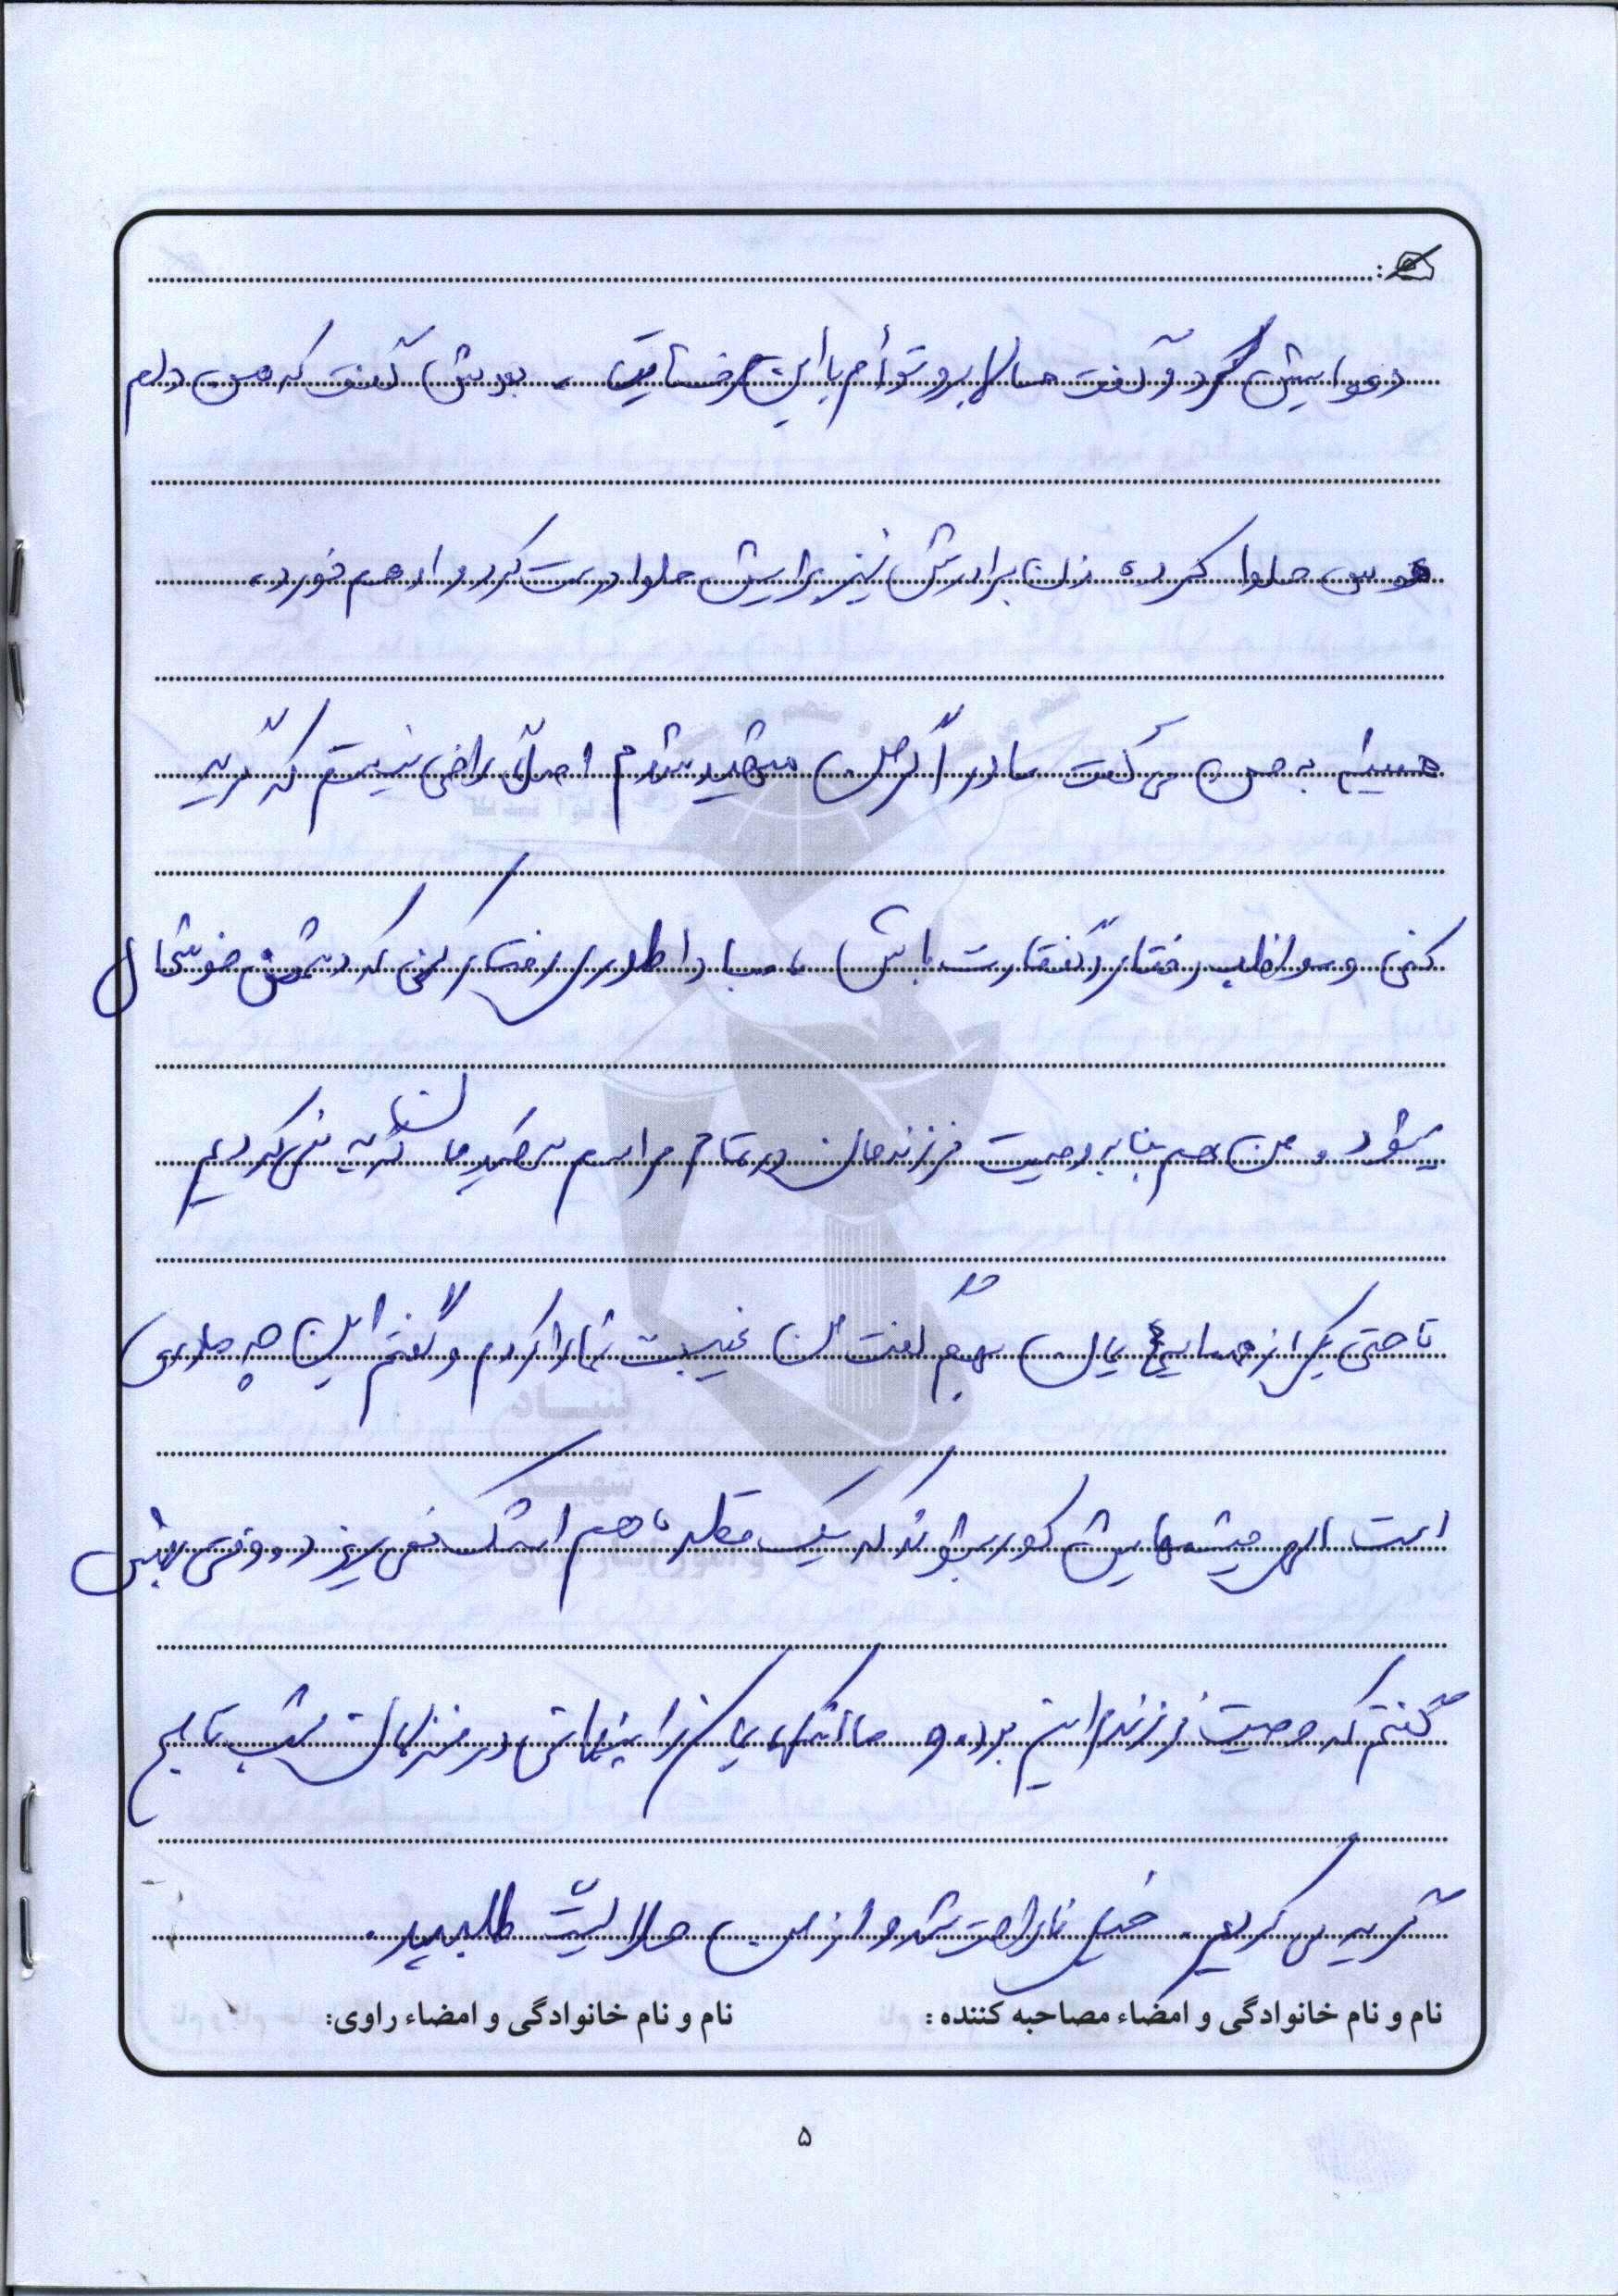 دعوایش کرد و گفت حالا برو توأم با این رضایت، بعدش گفت که من دلم
هوس حلوا کرده زن برادرش نیز برایش حلوا درست کرد و او هم خورد.
همیشه به من می گفت مادر اگر من شهید شدم اصلاً راضی نیستم که گریه
کنی و مواظب رفتار و گفتارت باش، مبادا طوری رفتار کنی که دشمن خوشحال
بشود. من هم بنا بر وصیت فرزندمان در تمام مراسم شهیدمان گریه نمی کردیم
تا حتی یکی از همسایه هایمان بهم گفت من غیبت شما را کردم و گفتم این چه مادری
است الهی چشمهایش کور بشوند که یک قطره هم اشک نمی ریزد. وقتی بهش
گفتم که وصیت فرزندم این بوده و ما اشکهایمان را پنهانی در منزلمان شب تا صبح
گریه می کردیم. خیلی ناراحت شد و از من حلالیت طلبید.
نام و نام خانوادگی و امضاء مصاحبه کننده: نام و نام خانوادگی و امضاء راوی:
۵